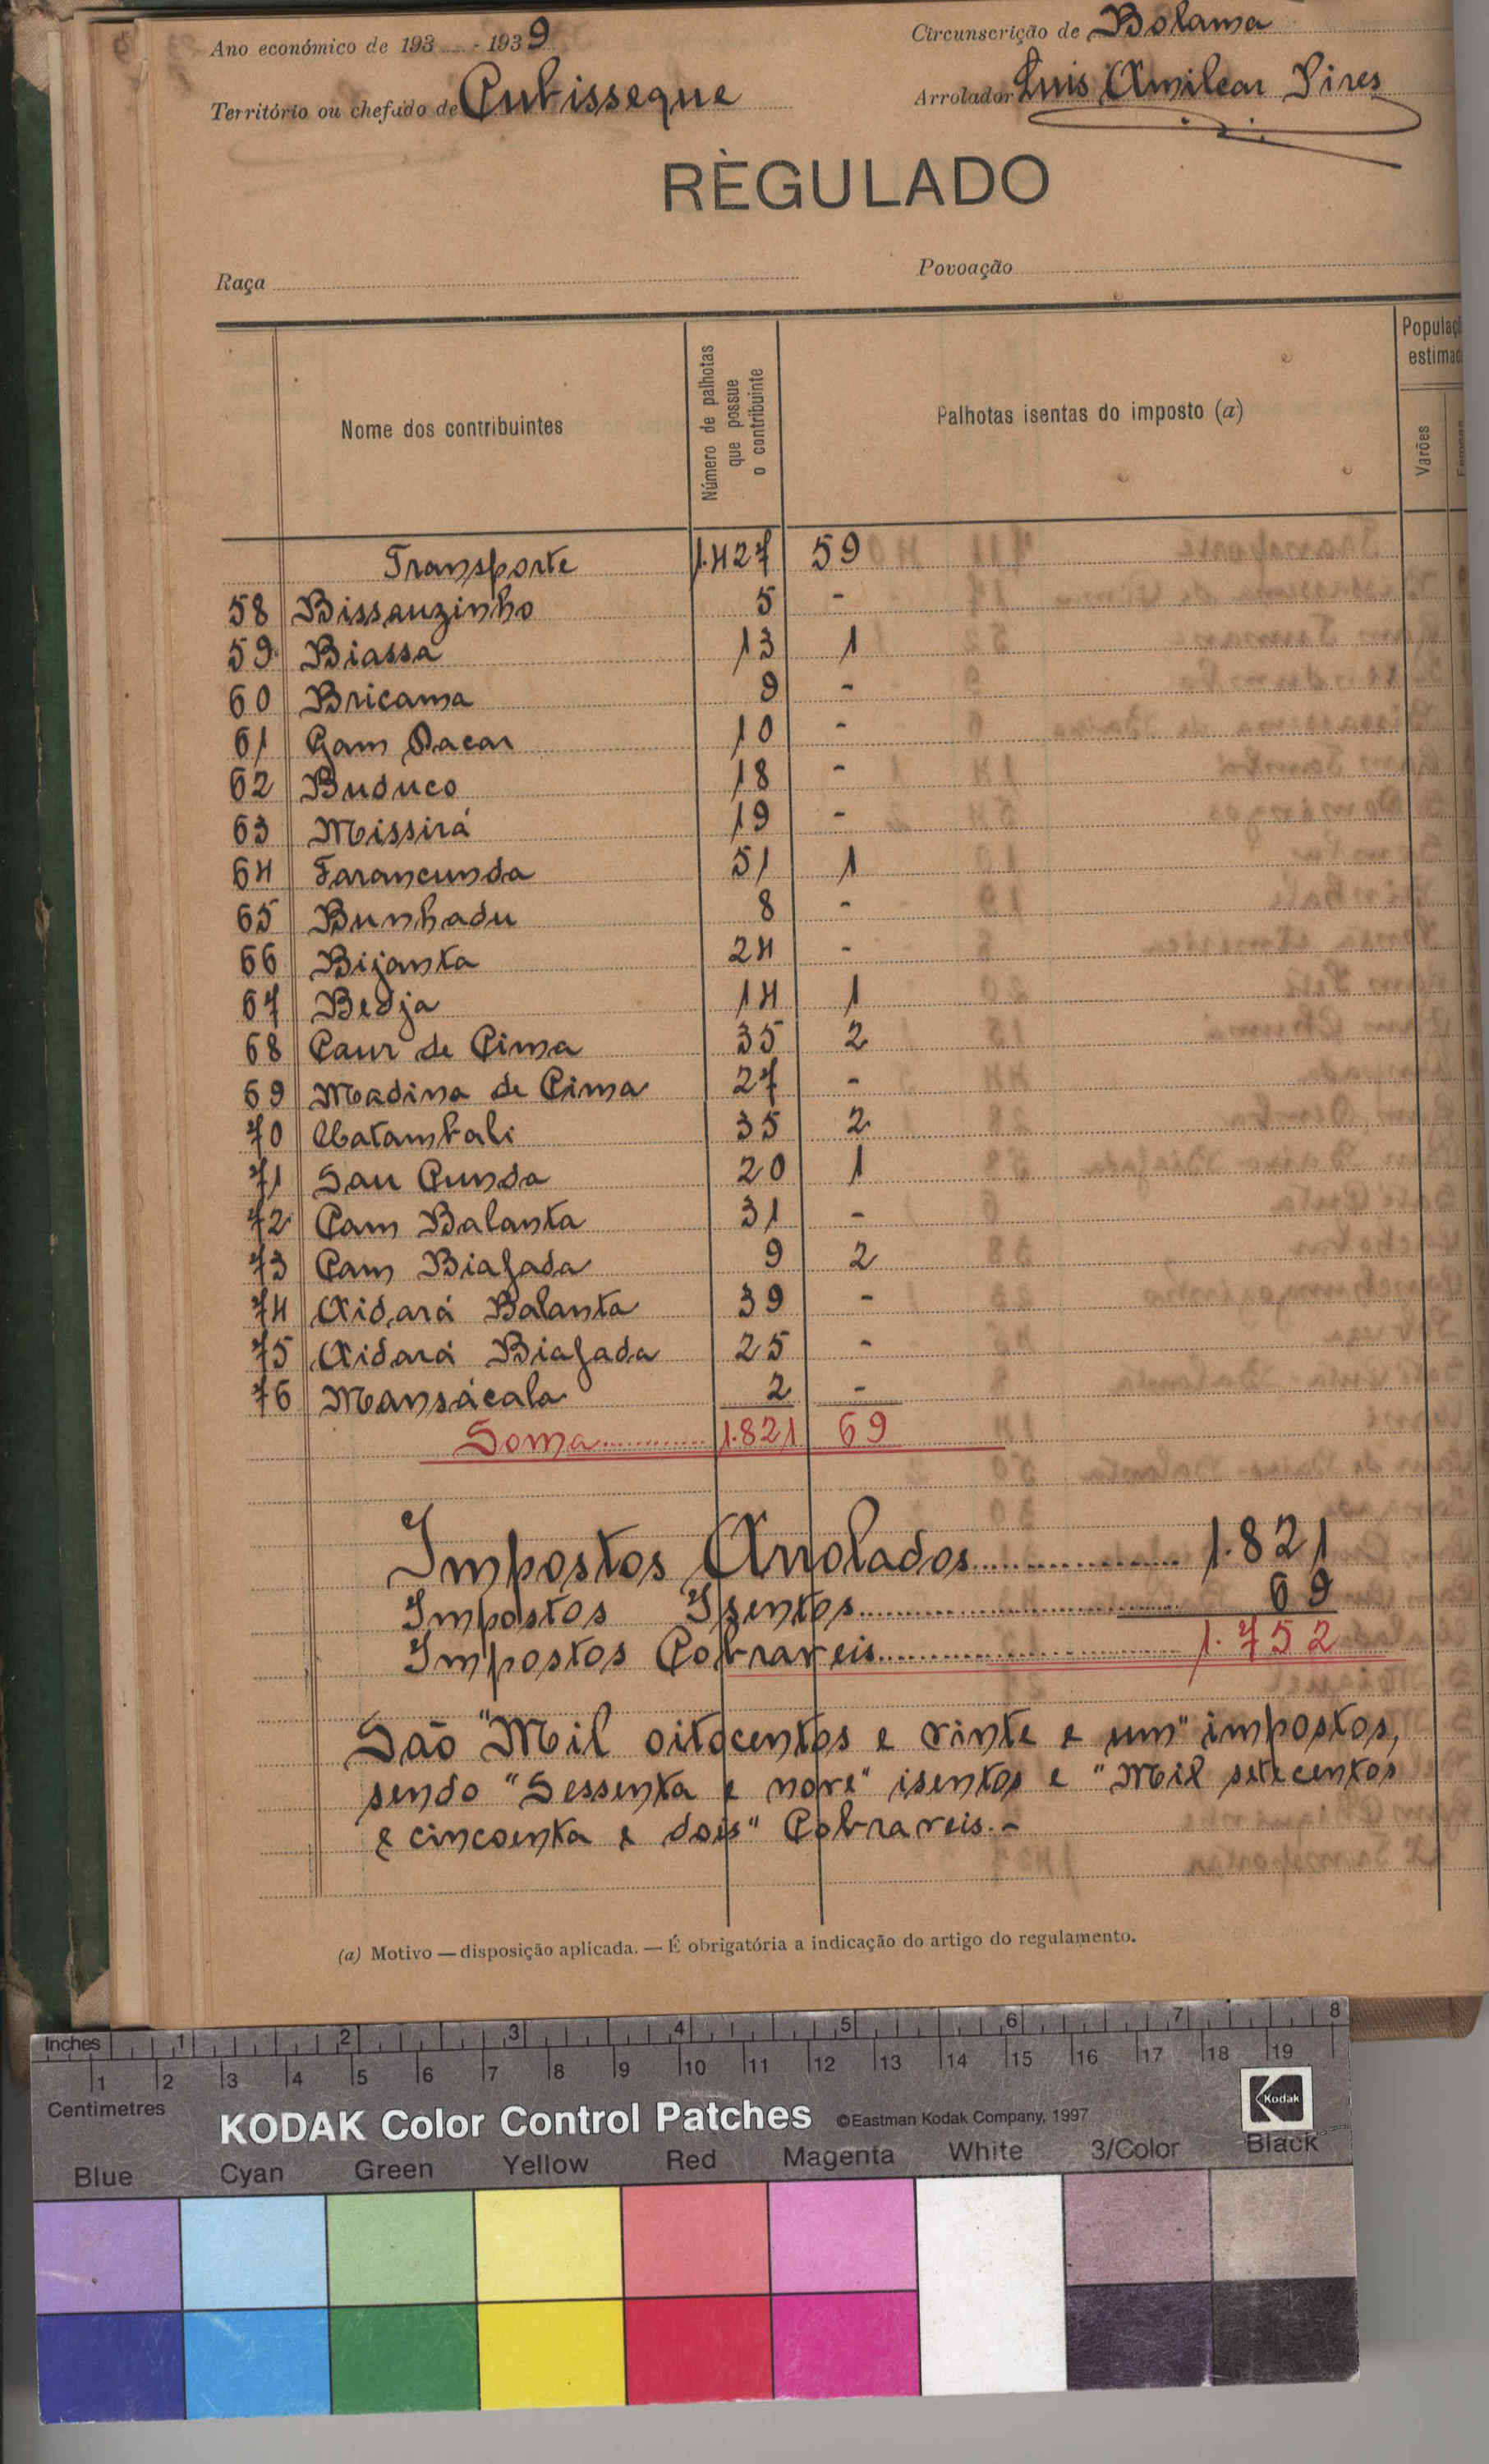 Ano económico de 193 - 1939
Circunscrição de Bolama
Território ou chefado de Cubisseque
Arrolador Luis Amilcar Pires
RÈGULADO
Raça
Povoação
Nome dos contribuintes
Número de palhotas que possue o contribuinte
Palhotas isentas do imposto (a)
Varões
Transporte 1.427 59
58 Bissauzinho 5 -
59 Biassa 13 1
60 Bricama 9 -
61 Gam Dacar 10 -
62 Buduco 18 -
63 Missirá 19 -
64 Farancunda 51 1
65 Bunhadu 8 -
66 Bijanta 24 -
67 Bedja 14 1
68 Caur de Cima 35 2
69 Madina de Cima 27 -
70 Batambali 35 2
71 Sau Cunda 20 1
72 Cam Balanta 31 -
73 Cam Biafada 9 2
74 Aidará Balanta 39 -
75 Aidará Biafada 25 -
76 Mansácala 2 -
Soma 1.821 69
Impostos Arrolados 1.821
Impostos Isentos 69
Impostos Cobraveis 1.752
São "Mil oitocentos e vinte e um" impostos,
sendo "Sessenta e nove" isentos e "Mil setecentos
e cincoenta e dois" Cobraveis.-
(a) Motivo — disposição aplicada. — É obrigatória a indicação do artigo do regulamento.
Inches 1 2 3 4 5 6 7 8
1 2 3 4 5 6 7 8 9 10 11 12 13 14 15 16 17 18 19
Centimetres
KODAK Color Control Patches ©Eastman Kodak Company, 1997 Kodak
Blue Cyan Green Yellow Red Magenta White 3/Color Black